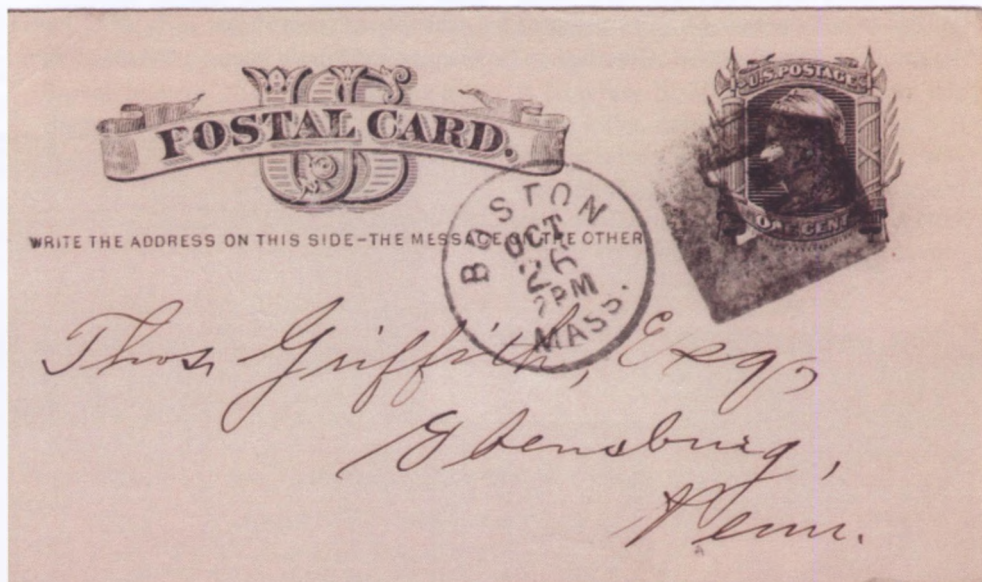 US
POSTAL CARD.
U.S. POSTAGE
ONE CENT
WRITE THE ADDRESS ON THIS SIDE-THE MESSAGE ON THE OTHER
BOSTON
OCT
26
7 PM
MASS.
Thos Griffith, Esq,
Ebensburg,
Penn.